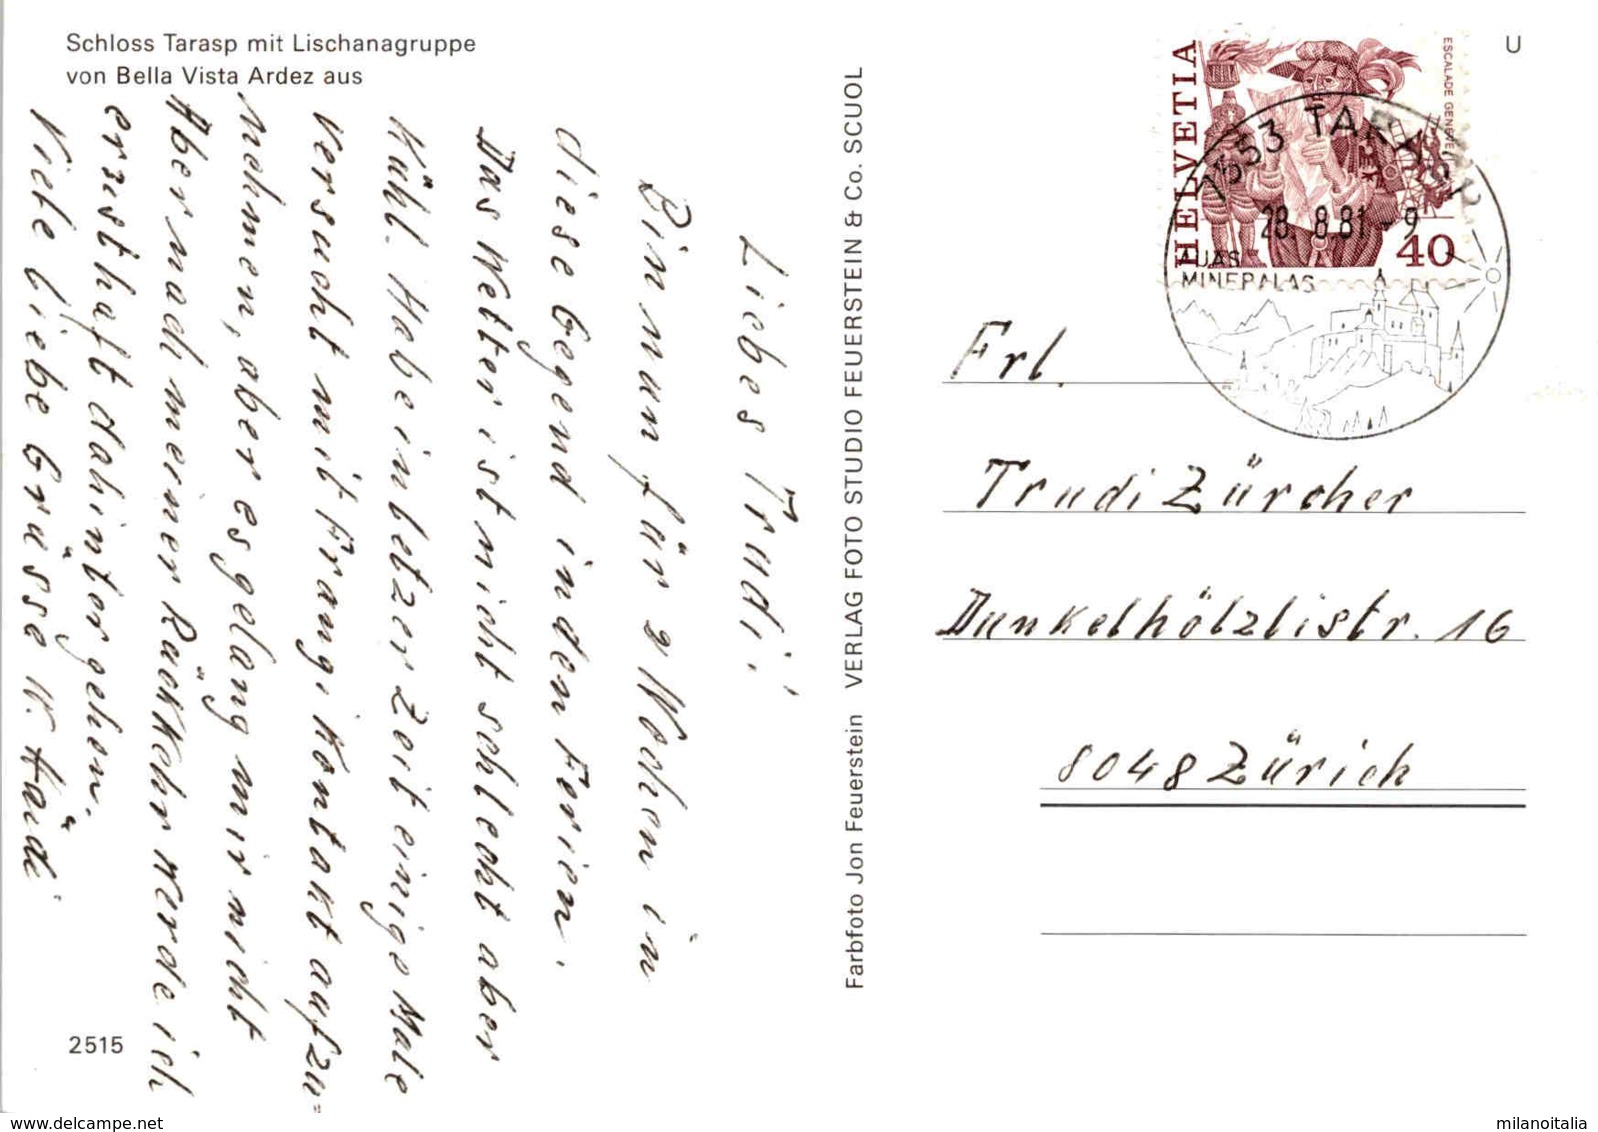 Schloss Tarasp mit Lischanagruppe
von Bella Vista Ardez aus
Liebes Trudi!
Bin nun für 2 Wochen in
diese Gegend in den Ferien.
Das Wetter ist nicht schlecht aber
kühl. Habe in letzer Zeit einige Male
versucht mit Frangi Kontakt aufzu=
nehmen, aber es gelang mir nicht
Aber nach meiner Rückkehr werde ich
ernsthaft dahinter gehen.
Viele liebe Grüsse V. Häidi
2515
Farbfoto Jon Feuerstein VERLAG FOTO STUDIO FEUERSTEIN & Co. SCUOL
U
HELVETIA
ESCALADE GENÈVE
40
1553 TARASP
28. 8.81 - 9
AUAS
MINERALAS
Frl.
Trudi Zürcher
Dunkelhölzlistr. 16
8048 Zürich
www.delcampe.net
milanoitalia